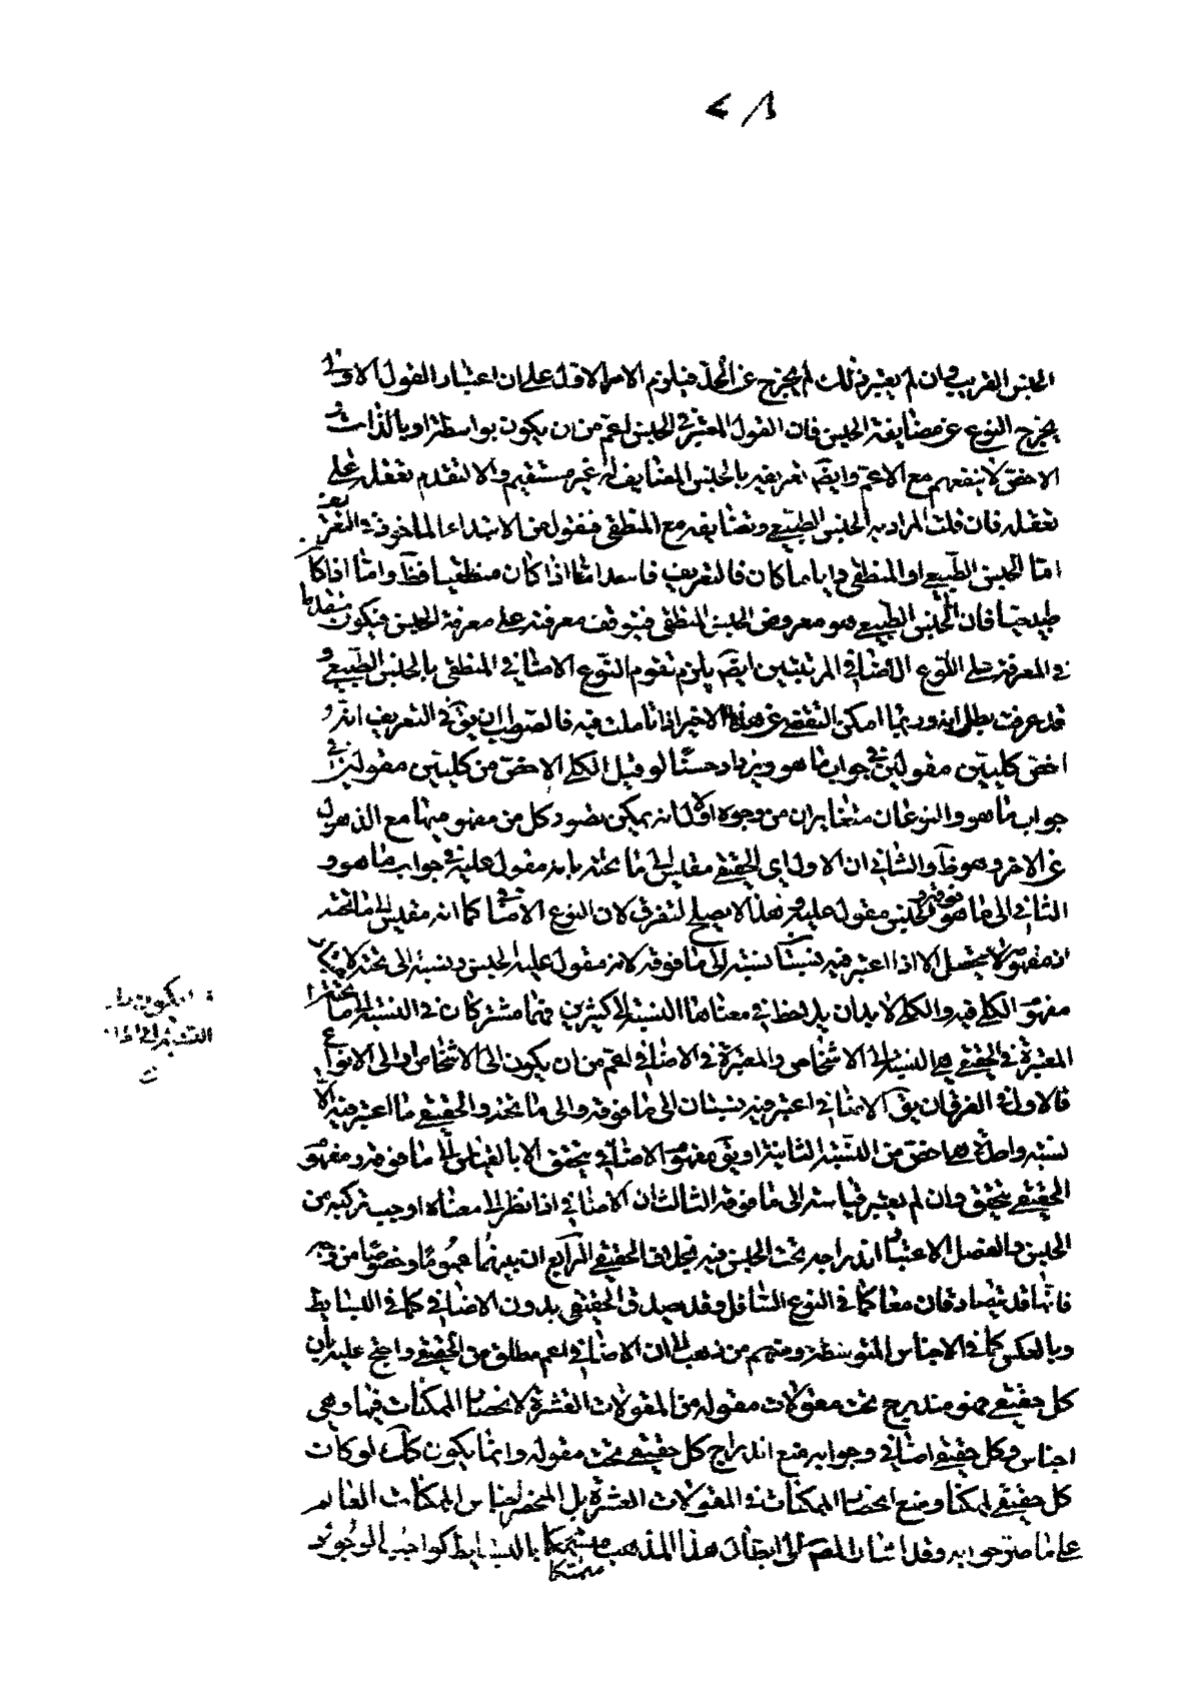 الجنس القريب وان لم يعتبر ذلك لم يخرج عن الحد فيلزم الامر الاول على ان اعتبار القول الاولى
يخرج النوع عن مضايفة الجنس فان القول المعتبر في الجنس اعم من ان يكون بواسطة او بالذات و
الاخص لا ينفهم مع الاعم وايضا تعريفه بالجنس المضايف له غير مستقيم والا لتقدم تعقله على
تعقله فان قلت المراد به الجنس الطبيعي وتضايفه مع المنطقي فنقول من الابتداء الماخوذ في التعريف
اما الجنس الطبيعي او المنطقي وايا ما كان فالتعريف فاسد اما اذا كان منطقيا فظ واما اذا كا
طبيعيا فان الجنس الطبيعي هو معروض الجنس المنطقي فيتوقف معرفته على معرفة الجنس فيكون متقدما
في المعرفة على النوع الاضافي المرتبتين ايضا يلزم تقوم النوع الاضافي المنطقي بالجنس الطبيعي و
قد عرفت بطلانه وربما امكن التفصي عن هذا الاخير اذا تاملت فيه فالصواب ان يق في التعريف انه
اخص كليين مقولين في جواب ما هو ويزداد حسنا لو قيل الكلي الاخص من كليين مقولين في
جواب ما هو والنوعان متغايران من وجوه الاول انه يمكن تصور كل من مفهوميهما مع الذهول
عن الاخر وهو ظ والثاني ان الاول اي الحقيقي مقيس الى ما تحته بانه مقول عليه في جواب ما هو و
الثاني الى ما هو فوقه والجنس مقول عليه وهذا لا يصلح لتفرق لان النوع الاضافي كما انه مقيس الى ما فوقه
اذ مفهومه لا يحصل الا اذا اعتبر فيه نسبتان نسبته الى ما فوقه لانه مقول عليه الجنس ونسبته الى ما تحته لان
مفهوم الكلي فيه والكلي لا بد ان يلاحظ في معناها النسبة الى كثيرين فهما مشتركان في النسبة الى ما تحتهما
المعتبرة في الحقيقي هي النسبة الى الاشخاص والمعتبرة في الاضافي اعم من ان يكون الى الاشخاص او الى الانواع
فالاولى في الفرق ان يق الاضافي اعتبر فيه نسبتان الى ما فوقه والى ما تحته والحقيقي ما اعتبر فيه الا
نسبة واحدة هي اخص من النسبة الثانية او يق مفهوم الاضافي يتحقق الا بالقياس الى ما فوقه ومفهوم
الحقيقي يتحقق وان لم يعتبر قياسه الى ما فوقه الثالث ان الاضافي اذا نظر الى معناه اوجب تركبه من
الجنس والفصل لاعتبار اندراجه تحت الجنس فيه بخلاف الحقيقي الرابع ان بينهما عموما وخصوصا من وجه
فانهما قد يتصادقان معا كما في النوع السافل وقد يصدق الحقيقي بدون الاضافي كما في البسايط
وبالعكس كما في الاجناس المتوسطة ومنهم من ذهب الى ان الاضافي اعم مطلق من الحقيقي واحتج عليه بان
كل حقيقي فهو مندرج تحت مقولات مقوله من المقولات العشرة لانحصار الممكنات فيها وهي
اجناس وكل حقيقي اضافي وجوابه منع اندراج كل حقيقي تحت مقوله وانما يكون كك لو كان
كل حقيقي ممكنا ومنع انحصار الممكنات في المقولات العشرة بل المنحصر اجناس الممكنات العالية
على ما صرحوا به وقد اشار المص الى ابطال هذا المذهب متمسكا بالبسايط كواجب الوجود
متمسكا